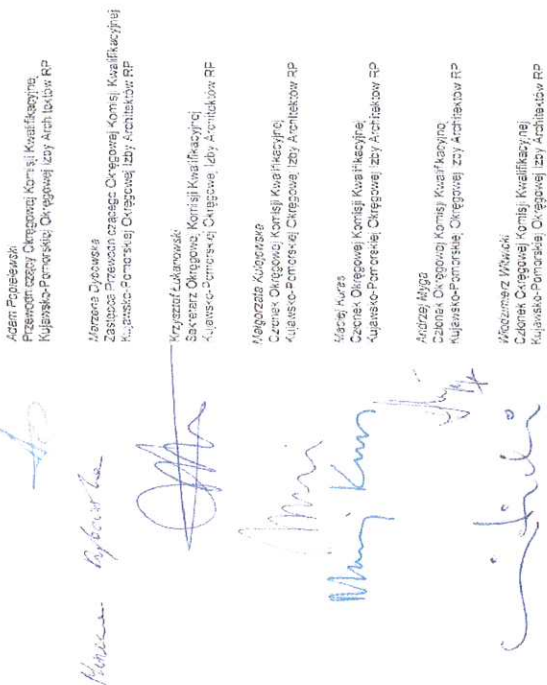 Adam Popielewski
Przewodniczący Okręgowej Komisji Kwalifikacyjnej
Kujawsko-Pomorskiej Okręgowej Izby Architektów RP
Marzena Dybowska
Zastępca Przewodniczącego Okręgowej Komisji Kwalifikacyjnej
Kujawsko-Pomorskiej Okręgowej Izby Architektów RP
Krzysztof Łukanowski
Sekretarz Okręgowej Komisji Kwalifikacyjnej
Kujawsko-Pomorskiej Okręgowej Izby Architektów RP
Małgorzata
Członek Okręgowej Komisji Kwalifikacyjnej
Kujawsko-Pomorskiej Okręgowej Izby Architektów RP
Maciej Kuras
Członek Okręgowej Komisji Kwalifikacyjnej
Kujawsko-Pomorskiej Okręgowej Izby Architektów RP
Andrzej Myga
Członek Okręgowej Komisji Kwalifikacyjnej
Kujawsko-Pomorskiej Okręgowej Izby Architektów RP
Włodzimierz Witwicki
Członek Okręgowej Komisji Kwalifikacyjnej
Kujawsko-Pomorskiej Okręgowej Izby Architektów RP